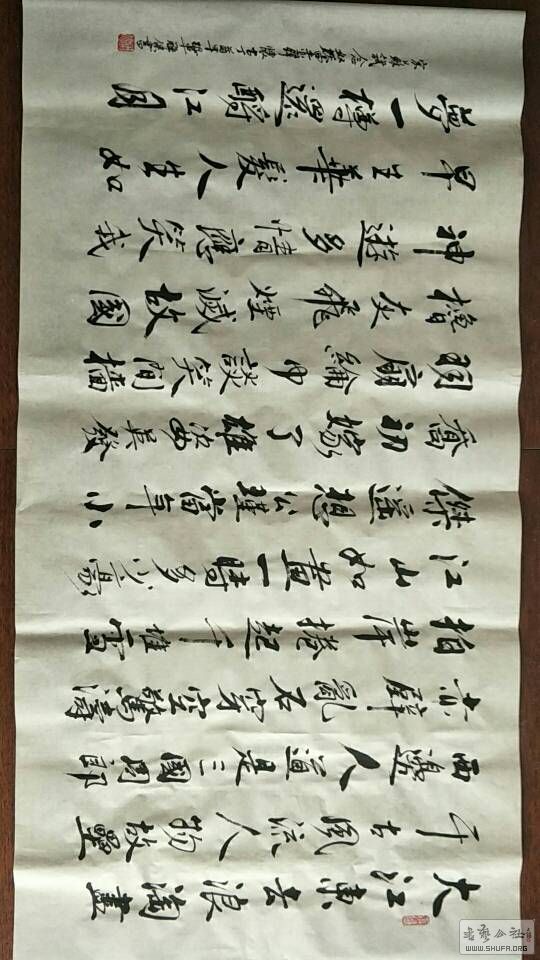 大江東去浪淘盡
千古風流人物故壘
西邊人道是三國周郎
赤壁亂石穿空驚濤
拍岸捲起千堆雪
江山如畫一時多少豪
傑遥想公瑾當年小
喬初嫁了雄姿英發
羽扇綸巾談笑間檣
櫓灰飛煙滅故國
神遊多情應笑我
早生華髮人生如
夢一樽還酹江月
宋蘇軾念奴嬌赤壁懷古
书艺公社
WWW.SHUFA.ORG